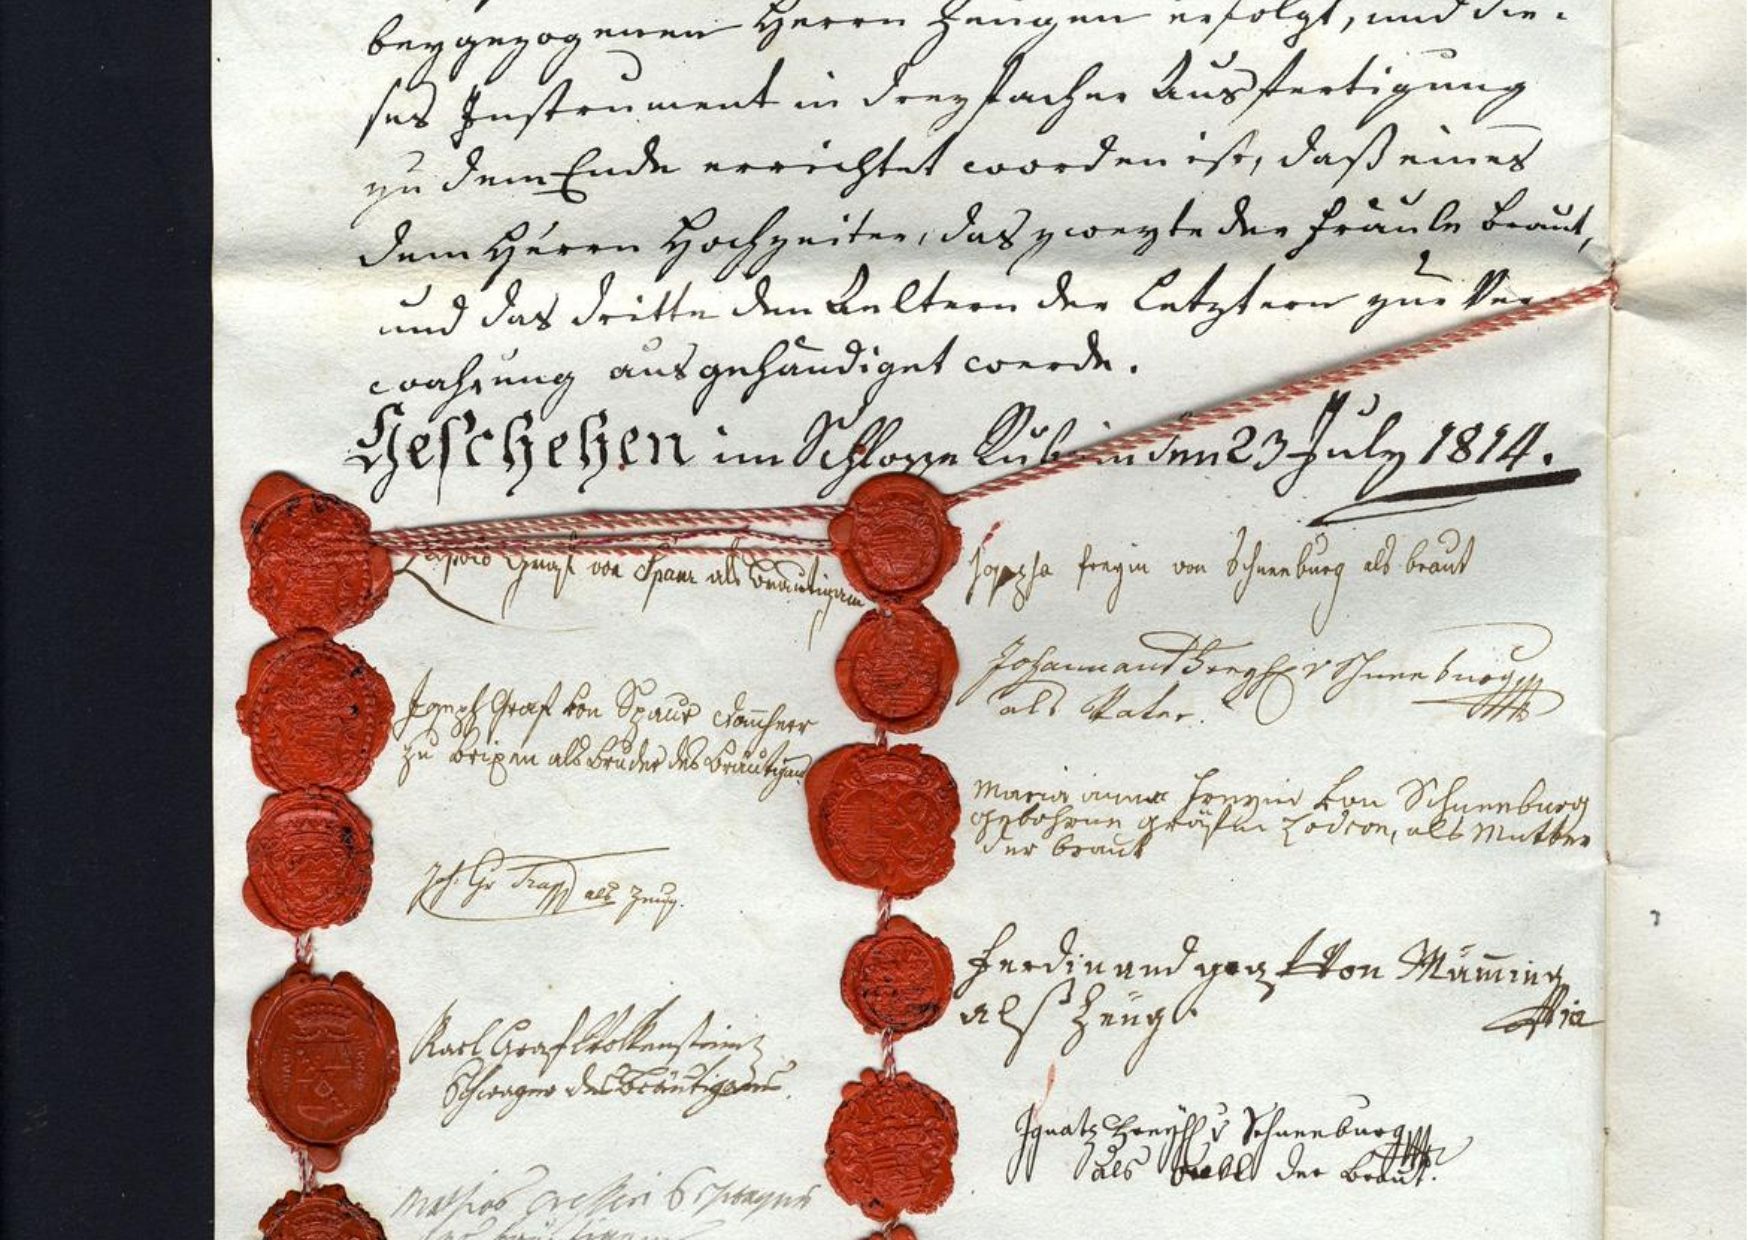 beygezogenen Herrn Zeugen erfolgt, und die-
ses Instrument in dreyfacher Ausfertigung
zu dem Ende errichtet worden ist, daß eines
dem Herrn Hochzeiter, das zweyte der Fräule Braut,
und das dritte den Aeltern der Letztern zur Ver-
wahrung ausgehändiget werde.
Geschehen im Schlosse Rubein den 23 July 1814.
Leopold Graf von Spaur als Bräutigam
Josepha Freyin von Schneeburg als Braut
Joseph Graf von Spaur Domherr
zu Brixen als Bruder des Bräutigams
Johann v Schneeburg
als Vater.
Maria Anna Freyin von Schneeburg
gebohrne Gräfin Lodron, als Mutter
der Braut
Joh. Gr Trapp als Zeug.
Ferdinand graf von Mäming
alß Zeüg.
Karl Graf Wolkenstein
Schwager des Bräutigams.
Ignatz Freyh v Schneeburg
als der Braut.
Mathias Schwager
des Bräutigams